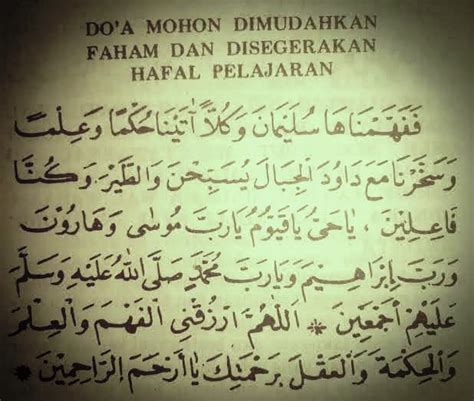 DO'A MOHON DIMUDAHKAN
FAHAM DAN DISEGERAKAN
HAFAL PELAJARAN
فَفَهَّمْنَاهَا سُلَيْمَانَ وَكُلًّا آتَيْنَا حُكْمًا وَعِلْمًا
وَسَخَّرْنَا مَعَ دَاوُدَ الْجِبَالَ يُسَبِّحْنَ وَالطَّيْرَ وَكُنَّا
فَاعِلِيْنَ ، يَاحَيُّ يَاقَيُّوْمُ يَارَبَّ مُوسَى وَهَارُوْنَ
وَرَبَّ إِبْرَاهِيْمَ وَيَارَبَّ مُحَمَّدٍ صَلَّى اللهُ عَلَيْهِ وَسَلَّمَ
عَلَيْهِمْ أَجْمَعِيْنَ * اَللّٰهُمَّ ارْزُقْنِي الْفَهْمَ وَالْعِلْمَ
وَالْحِكْمَةَ وَالْعَقْلَ بِرَحْمَتِكَ يَاأَرْحَمَ الرَّاحِمِيْنَ *